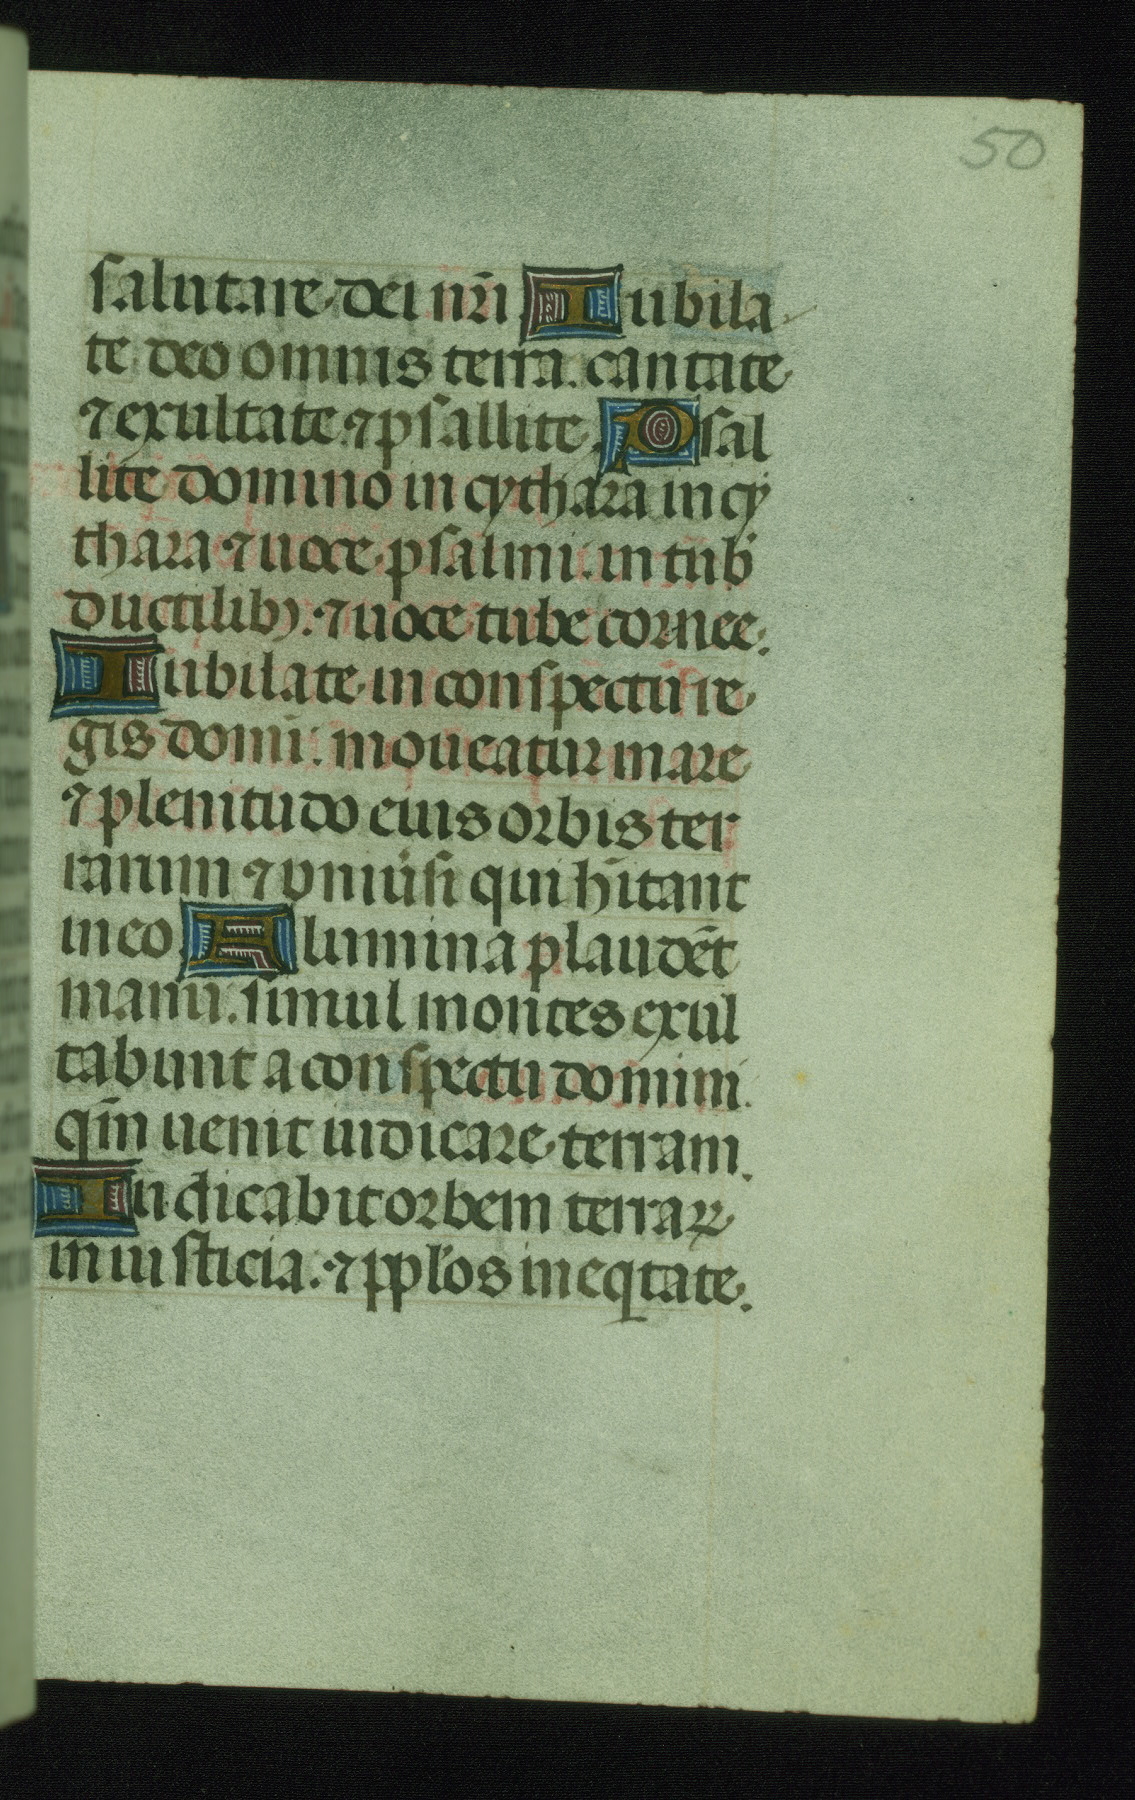 50
salutare dei nr̄i Iubila
te deo omnis terra. cantate
⁊ exultate ⁊ psallite. Psal
lite domino in cythara in cy
thara ⁊ uoce psalmi. in tub̄
ductilibꝫ. ⁊ uoce tube cornee.
Iubilate in conspectu re
gis domī: moueatur mare
⁊ plenitudo eius orbis ter
rarum ⁊ vniusi qui hītant
in eo Flumina plaudēt
manu. simul montes exul
tabunt a conspectu domini.
qm̄ uenit iudicare terram.
Iudicabit orbem terraꝝ
in iusticia. ⁊ pplo̕s in eqtate.